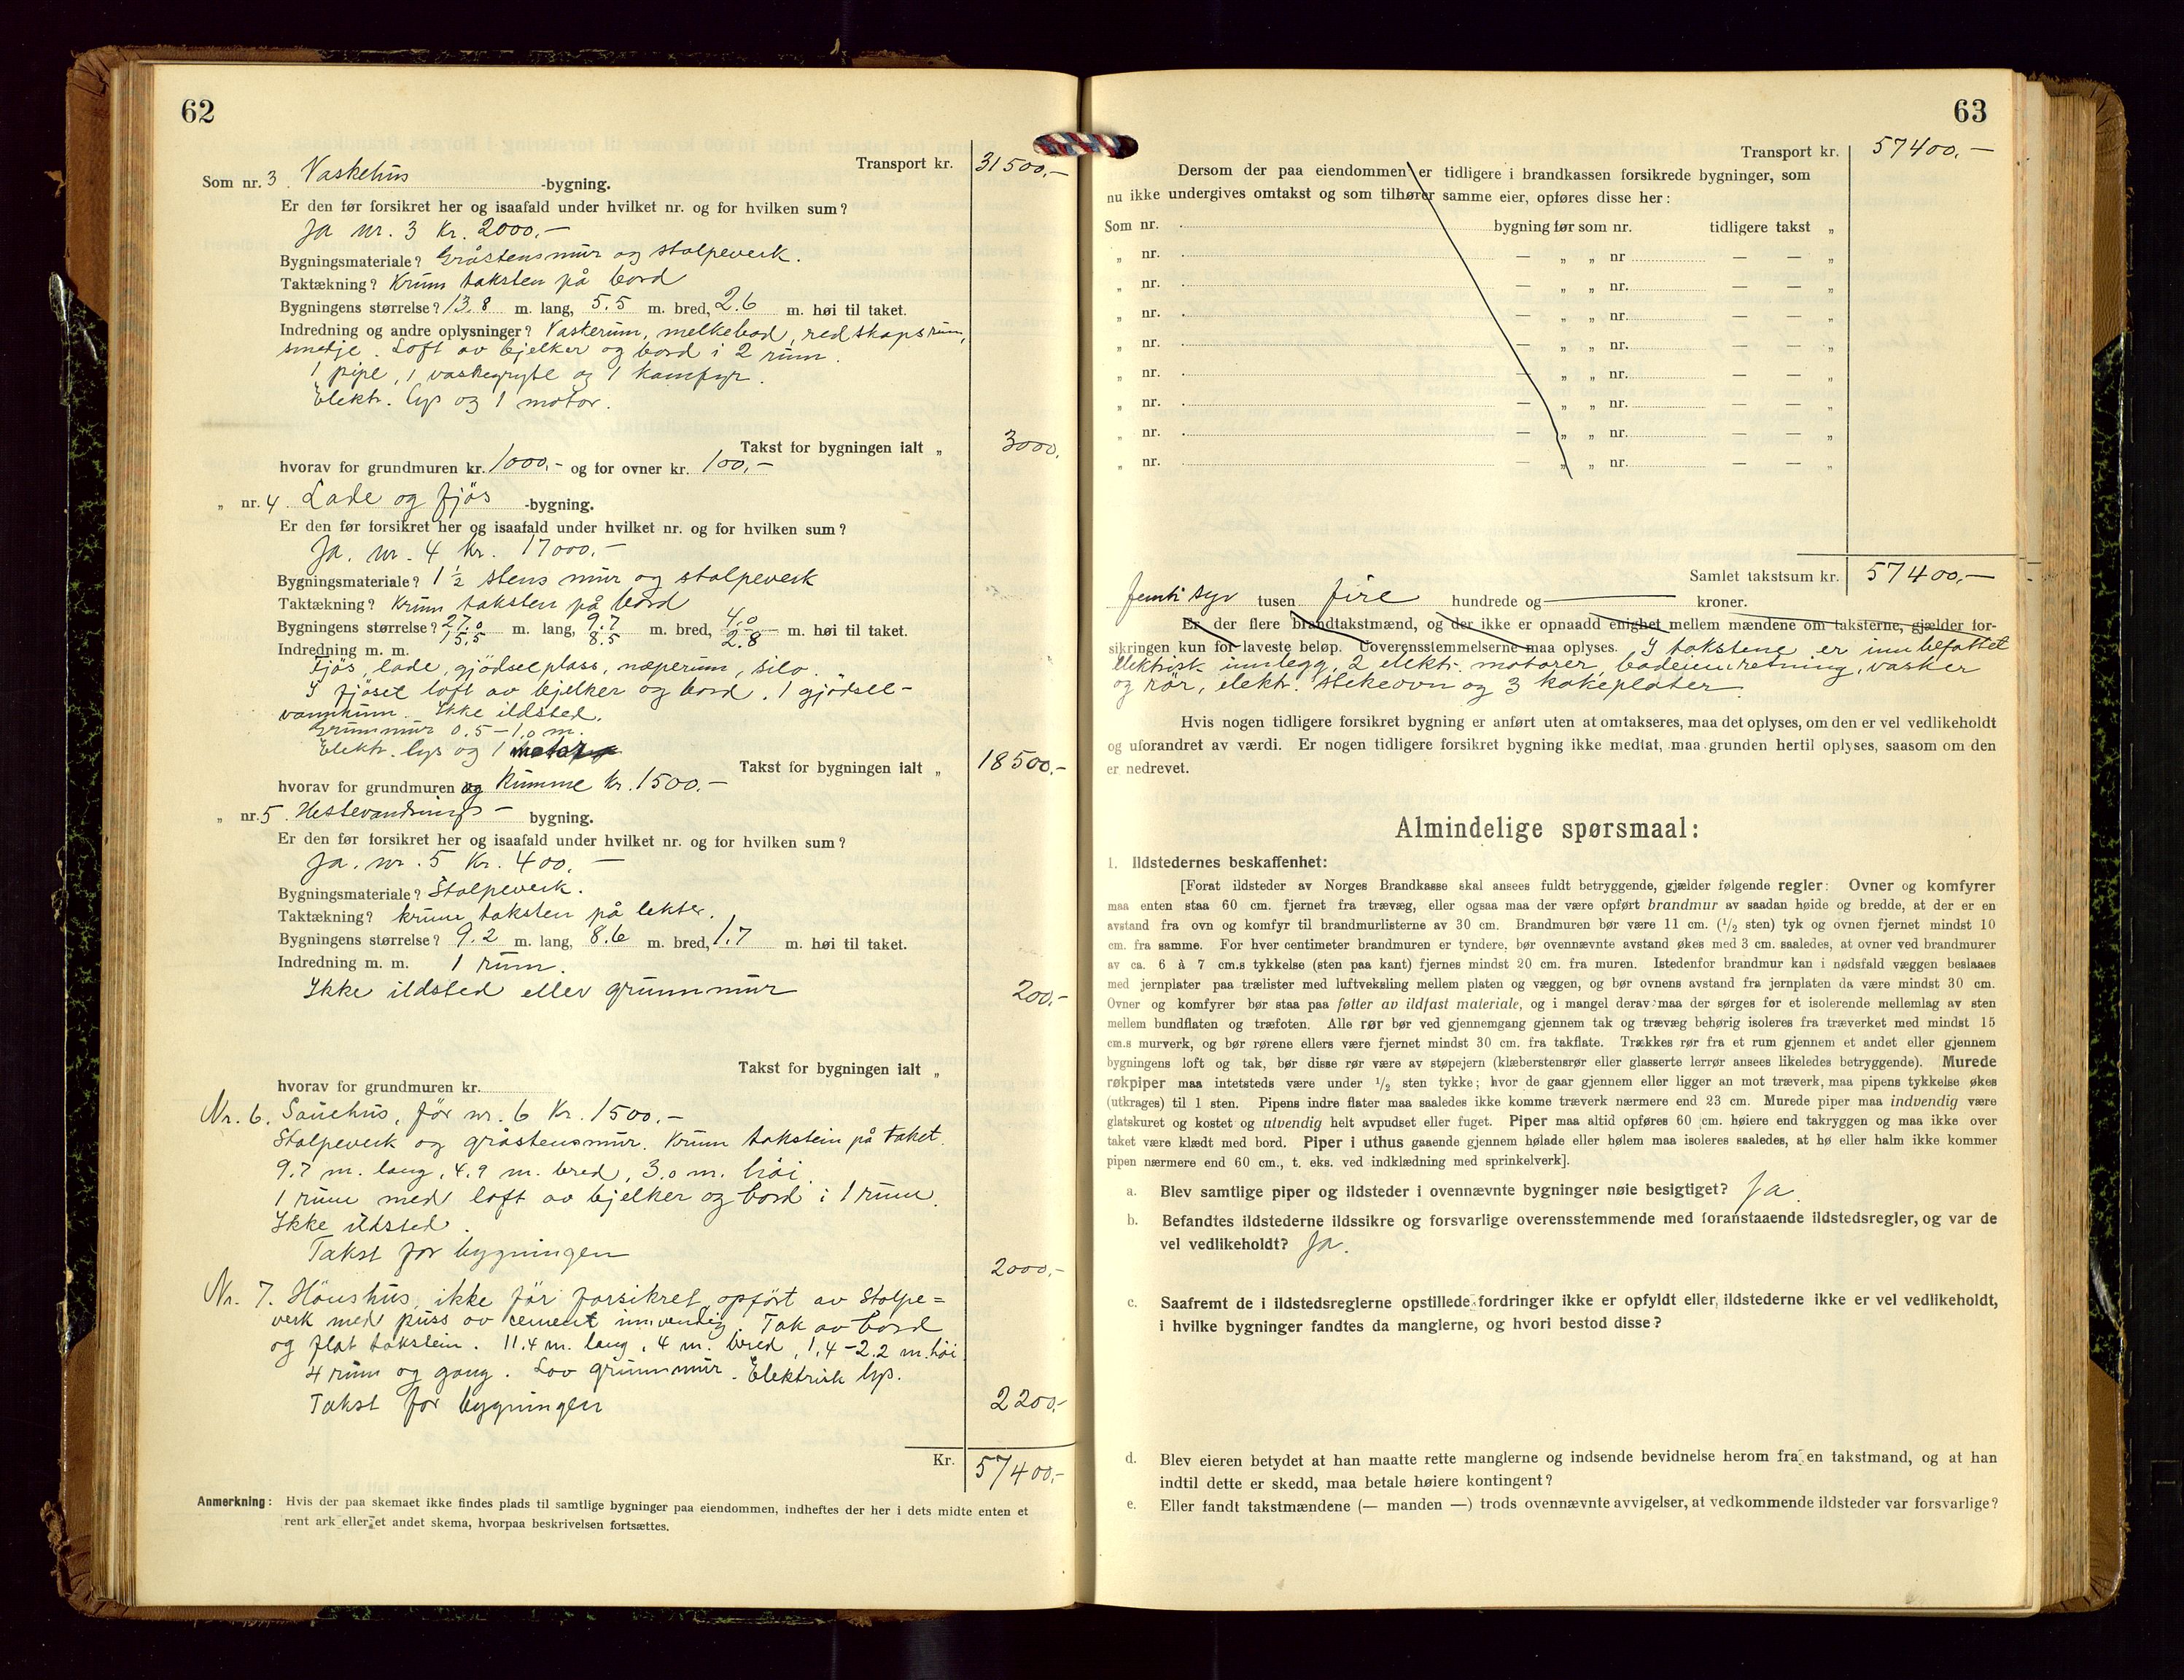 62
Transport kr. 31500.-
Som nr. 3. Vaskehus -bygning.
Er den før forsikret her og isaafald under hvilket nr. og for hvilken sum?
Ja nr. 3 Kr. 2000.-
Bygningsmateriale? Gråstensmur og stolpeverk.
Taktækning? Krum taksten på bord
Bygningens størrelse? 13.8 m. lang, 5.5 m. bred, 2.6 m. høi til taket.
Indredning og andre oplysninger? Vasterum, melkebod, redskapsrum,
smedje. Loft av bjelker og bord i 2 rum.
1 pipe, 1 vaskegryte og 1 komfyr.
Elektr. lys og 1 motor.
Takst for bygningen ialt „ 3000.
hvorav for grundmuren kr. 1000.- og for ovner kr. 100.-
„ nr. 4. Lade og fjös -bygning.
Er den før forsikret her og isaafald under hvilket nr. og for hvilken sum?
Ja. nr. 4 Kr. 17000.-
Bygningsmateriale? 1 ½ stens mur og stolpeverk
Taktækning? Krum taksten på bord
Bygningens størrelse? 27.0 m. lang, 9.7 m. bred, 4.0 m. høi til taket.
15.5 8.5 2.8
Indredning m. m.
Fjös, lade, gjödselplass, næperum, silo.
I fjöset loft av bjelker og bord. 1 gjödsel-
vannkum. Ikke ildsted.
Grunnmur 0.5-1.0 m.
Elektr. lys og 1 motor
Takst for bygningen ialt „ 18500.-
hvorav for grundmuren og Kumme kr. 1500.-
„ nr. 5. Hestevandrings- bygning.
Er den før forsikret her og isaafald under hvilket nr. og for hvilken sum?
Ja. nr. 5 Kr. 400.-
Bygningsmateriale? Stolpeverk.
Taktækning? krum taksten på lekter.
Bygningens størrelse? 9.2 m. lang, 8.6 m. bred, 1.7 m. høi til taket.
Indredning m. m. 1 rum.
Ikke ildsted eller grunnmur 200.-
Takst for bygningen ialt „
hvorav for grundmuren kr.
Nr. 6. Sauehus, för nr. 6 Kr. 1500.-
Stolpeverk og gråstensmur. Krum takstein på taket.
9.7 m. lang, 4.9 m. bred, 3.0 m. höi.
1 rum med loft av bjelker og bord i 1 rum.
Ikke ildsted.
Takst for bygningen 2000.-
Nr. 7. Hönshus, ikke för forsikret, opfört av Stolpe=
verk med puss av cement innvendig. Tak av bord
og flat takstein. 11.4 m. lang, 4 m. bred, 1.4-2.2 m. höi
4 rum og gang. Lav grunnmur. Elektrisk lys.
Takst for bygningen 2200.-
Kr. 57400.-
Anmerkning: Hvis der paa skemaet ikke findes plads til samtlige bygninger paa eiendommen, indheftes der her i dets midte enten et
rent ark eller et andet skema, hvorpaa beskrivelsen fortsættes.
63
Transport kr. 57400.-
Dersom der paa eiendommen er tidligere i brandkassen forsikrede bygninger, som
nu ikke undergives omtakst og som tilhører samme eier, opføres disse her:
Som nr. bygning før som nr. tidligere takst „
„ nr. — „ „ nr — — „
„ nr. — „ „ nr. — — „
„ nr. — „ „ nr. — — „
„ nr. — „ „ nr. — — „
„ nr. — „ „ nr. — — „
„ nr. — „ „ nr. — — „
„ nr. — „ „ nr. — — „
„ nr. — „ „ nr. — — „
Samlet takstsum kr. 57400.-
femti syv tusen fire hundrede og — kroner.
Er der flere brandtakstmænd, og der ikke er opnaadd enighet mellem mændene om taksterne, gjælder for-
sikringen kun for laveste beløp. Uoverensstemmelserne maa oplyses. I takstene er innbefattet
elektrisk innlegg, 2 elektr. motorer, badeinnretning, vasker
og rör, elektr. stekeovn og 3 kokeplater.
Hvis nogen tidligere forsikret bygning er anført uten at omtakseres, maa det oplyses, om den er vel vedlikeholdt
og uforandret av værdi. Er nogen tidligere forsikret bygning ikke medtat, maa grunden hertil oplyses, saasom om den
er nedrevet.
Almindelige spørsmaal:
1. Ildstedernes beskaffenhet:
[Forat ildsteder av Norges Brandkasse skal ansees fuldt betryggende, gjælder følgende regler: Ovner og komfyrer
maa enten staa 60 cm. fjernet fra trævæg, eller ogsaa maa der være opført brandmur av saadan høide og bredde, at der er en
avstand fra ovn og komfyr til brandmurlisterne av 30 cm. Brandmuren bør være 11 cm. (1/2 sten) tyk og ovnen fjernet mindst 10
cm. fra samme. For hver centimeter brandmuren er tyndere, bør ovennævnte avstand økes med 3 cm. saaledes, at ovner ved brandmurer
av ca. 6 à 7 cm.s tykkelse (sten paa kant) fjernes mindst 20 cm. fra muren. Istedenfor brandmur kan i nødsfald væggen beslaaes
med jernplater paa trælister med luftveksling mellem platen og væggen, og bør ovnens avstand fra jernplaten da være mindst 30 cm.
Ovner og komfyrer bør staa paa føtter av ildfast materiale, og i mangel derav maa der sørges for et isolerende mellemlag av sten
mellem bundflaten og træfoten. Alle rør bør ved gjennemgang gjennem tak og trævæg behørig isoleres fra træverket med mindst 15
cm.s murverk, og bør rørene ellers være fjernet mindst 30 cm. fra takflate. Trækkes rør fra et rum gjennem et andet eller gjennem
bygningens loft og tak, bør disse rør være av støpejern (klæberstensrør eller glasserte lerrør ansees likeledes betryggende). Murede
røkpiper maa intetsteds være under 1/2 sten tykke; hvor de gaar gjennem eller ligger an mot træverk, maa pipens tykkelse økes
(utkrages) til 1 sten. Pipens indre flater maa saaledes ikke komme træverk nærmere end 23 cm. Murede piper maa indvendig være
glatskuret og kostet og utvendig helt avpudset eller fuget. Piper maa altid opføres 60 cm. høiere end takryggen og maa ikke over
taket være klædt med bord. Piper i uthus gaaende gjennem hølade eller hølem maa isoleres saaledes, at hø eller halm ikke kommer
pipen nærmere end 60 cm., t. eks. ved indklædning med sprinkelverk].
a. Blev samtlige piper og ildsteder i ovennævnte bygninger nøie besigtiget? Ja.
b. Befandtes ildstederne ildssikre og forsvarlige overensstemmende med foranstaaende ildstedsregler, og var de
vel vedlikeholdt? Ja.
c. Saafremt de i ildstedsreglerne opstillede fordringer ikke er opfyldt eller ildstederne ikke er vel vedlikeholdt,
i hvilke bygninger fandtes da manglerne, og hvori bestod disse?
d. Blev eieren betydet at han maatte rette manglerne og indsende bevidnelse herom fra en takstmand, og at han
indtil dette er skedd, maa betale høiere kontingent?
e. Eller fandt takstmændene (— manden —) trods ovennævnte avvigelser, at vedkommende ildsteder var forsvarlige?